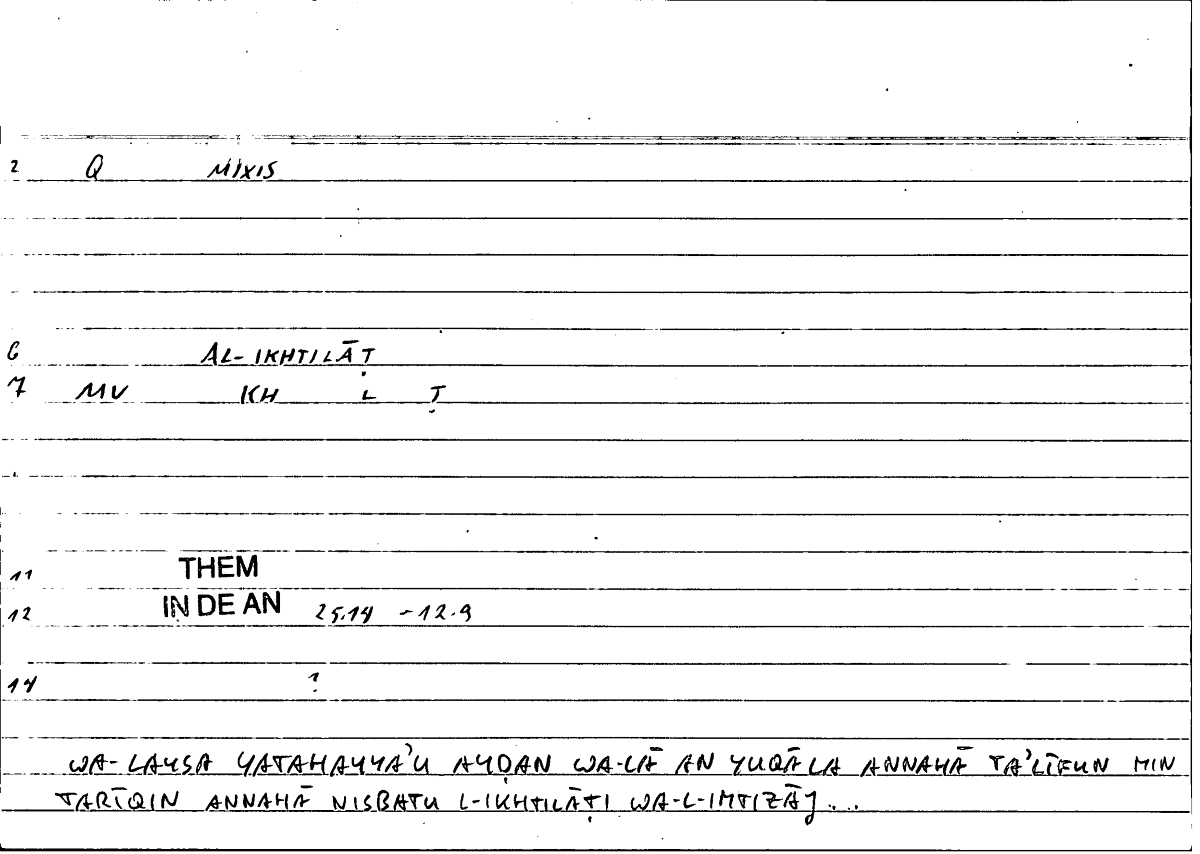 2 Q MIXIS
6 AL-IKHTILĀṬ
7 MV KH L Ṭ
11 THEM
12 IN DE AN 25.14 -12.9
14 ?
WA-LAYSA YATAHAYYA'U AYḌAN WA-LĀ AN YUQĀLA ANNAHĀ TA'LĪFUN MIN
TARĪQIN ANNAHĀ NISBATU L-IKHTILĀṬI WA-L-IMTIZĀJ...